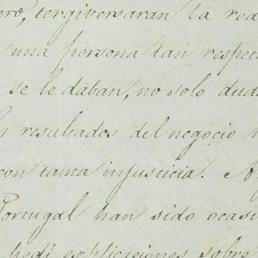 tergiversaran la rea
una persona tan respet
se le daban, no solo dud
resultados del negocio
con tanta injusticia. A
Portugal han sido ocasi
pedi esplicaciones sobre